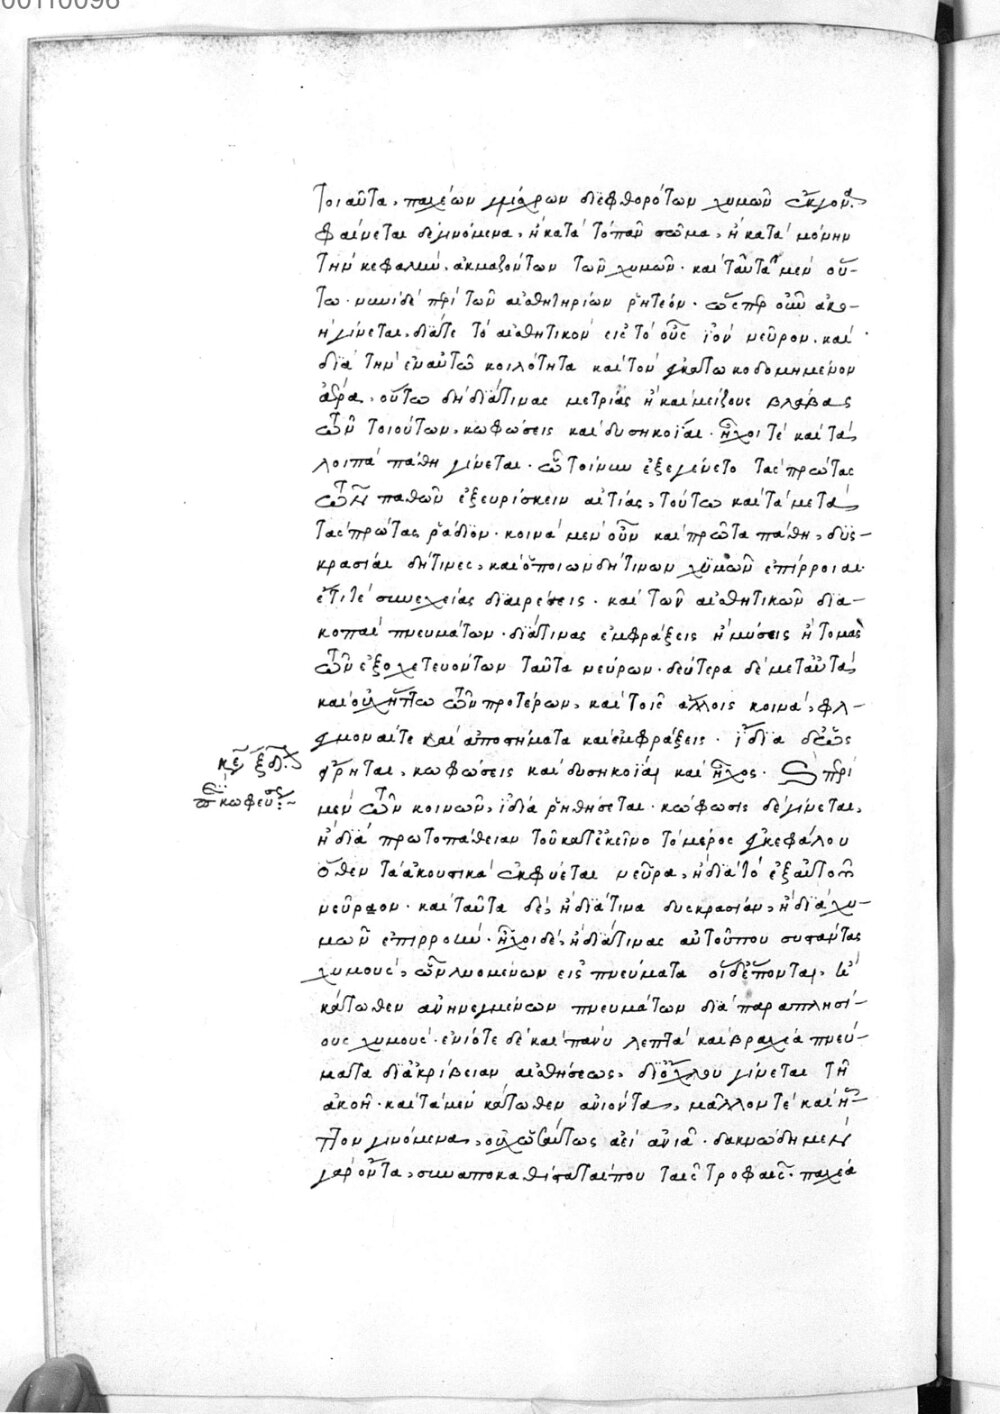 00110096
τοιαῦτα, παχέων γλίσχρων διεφθορότων χυμῶν ἔκγονα,
φαίνεται δὲ γινόμενα, ἢ κατὰ τὸ πᾶν σῶμα, ἢ κατὰ μόνην
τὴν κεφαλὴν, ἀκμαζόντων τῶν χυμῶν. καὶ ταῦτα μὲν οὕ-
τω. νυνὶ δὲ περὶ τῶν αἰσθητηρίων ῥητέον. ὥσπερ οὖν ἀκο-
ὴ γίνεται, διά τε τὸ αἰσθητικὸν εἰς τὸ οὖς ἰὸν νεῦρον. καὶ
διὰ τὴν ἐν αὐτῶ κοιλότητα καὶ τὸν ἐγκατωκοδομημένον
ἀέρα, οὕτω δὴ διά τινας μετρίας ἢ καὶ μείζους βλάβας
τῶν τοιούτων, κωφώσεις καὶ δυσηκοΐαι. ἦχοι τὲ καὶ τὰ
λοιπὰ πάθη γίνεται. ὧ τοίνυν ἐξεγένετο τὰς πρώτας
τῶν παθῶν ἐξευρίσκειν αἰτίας, τούτω καὶ τὰ μετὰ
τὰς πρώτας ῥάδιον. κοινὰ μὲν οὖν καὶ πρῶτα πάθη, δυσ-
κρασίαι δή τινες, καὶ ὁποιωνδήτινων χυμῶν ἐπίρροιαι.
ἔτι τὲ συνεχείας διαιρέσεις. καὶ τῶν αἰσθητικῶν δια-
κοπαὶ πνευμάτων. διά τινας ἐμφράξεις ἢ μύσεις ἢ τομὰς
τῶν ἐξοχετευόντων ταῦτα νεύρων. δεύτερα δὲ μετ' αὐτὰ
καὶ οὐχ ἧττω τῶν προτέρων, καὶ τοῖς ἄλλοις κοινὰ, φλ-
εγμοναί τε καὶ ἀποστήματα καὶ ἐμφράξεις. ἴδια δὲ ὡς
εἴρηται, κωφώσεις καὶ δυσηκοΐαι καὶ ἦχος. περὶ
κε ξδ.
περὶ κωφεύσεως
μὲν τῶν κοινῶν, ἰδία ῥηθήσεται. κώφωσις δὲ γίνεται,
ἢ διὰ πρωτοπάθειαν τοῦ κατ' ἐκεῖνο τὸ μέρος ἐγκεφάλου
ὅθεν τὰ ἀκουστικὰ ἐκφύεται νεῦρα, ἢ διὰ τὸ ἐξ αὐτοῦ
νεῦρον. καὶ ταῦτα δὲ, ἢ διά τινα δυσκρασίαν, ἢ διὰ χυ-
μῶν ἐπιρροιὴν. ἦχοι δὲ, ἢ διά τινας αὐτοῦ που συστάντας
χυμοὺς, ὧν λυομένων εἰς πνεύματα
κάτωθεν ἀνηνεγμένων πνευμάτων διὰ παραπλησί-
ους χυμοὺς. ἐνίοτε δὲ καὶ πάνυ λεπτὰ καὶ βραχέα πνεύ-
ματα δι' ἀκρίβειαν αἰσθήσεως, δι' ὄχλου γίνεται τῆ
ἀκοῆ. καὶ τὰ μὲν κάτωθεν ἀνιόντα, μᾶλλον τὲ καὶ ἧτ-
τον γινόμενα, οὐχ ὡσαύτως ἀεὶ ἀνιᾶ. δακνώδη μὲν
γὰρ ὄντα, συναποκαθίσταταί που ταῖς τροφαῖς. παχέα